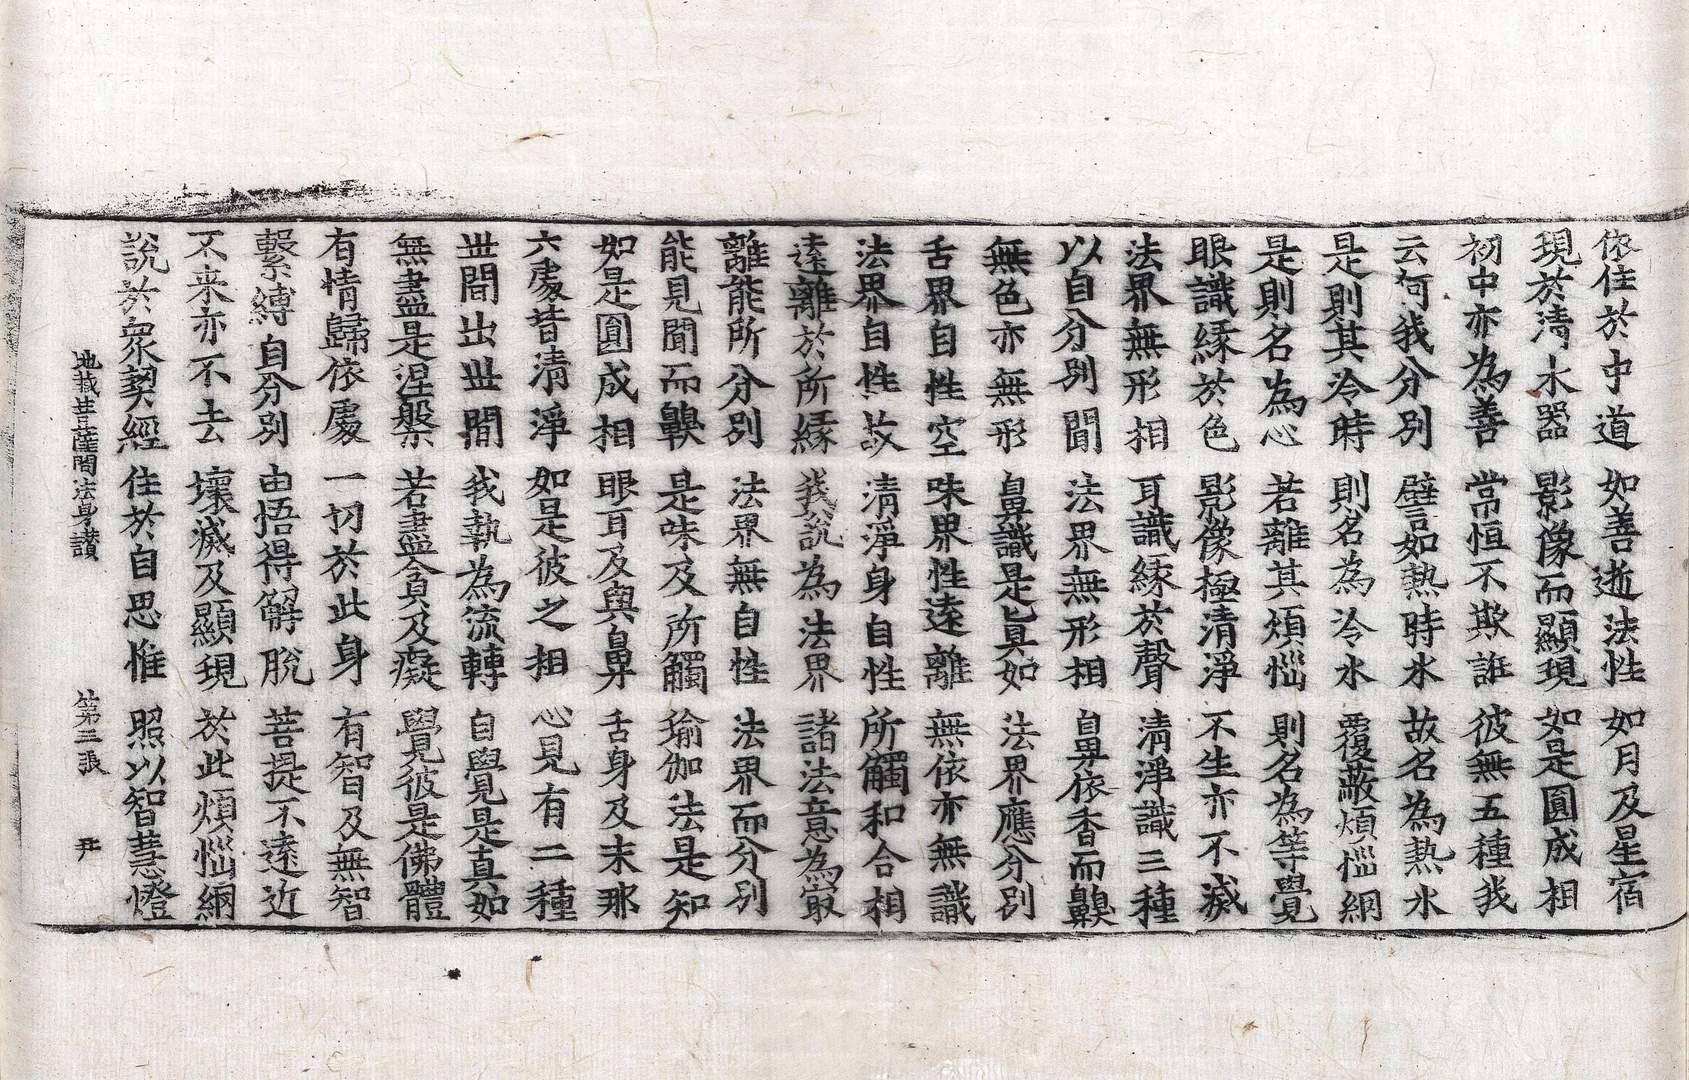 依住於中道 如善逝法性 如月及星宿
現於清水器 影像而顯現 如是圓成相
初中亦為善 常恒不欺誑 彼無五種我
云何我分別 譬如熱時水 故名為熱水
是則其冷時 則名為冷水 覆蔽煩惱網
是則名為心 若離其煩惱 則名為等覺
眼識緣於色 影像極清淨 不生亦不滅
法界無形相 耳識緣於聲 清淨識三種
以自分別聞 法界無形相 鼻依香而齅
無色亦無形 鼻識是真如 法界應分別
舌界自性空 味界性遠離 無依亦無識
法界自性故 清淨身自性 所觸和合相
遠離於所緣 我說為法界 諸法意為㝡
離能所分別 法界無自性 法界而分別
能見聞而齅 是味及所觸 瑜伽法是知
如是圓成相 眼耳及與鼻 舌身及末那
六處皆清淨 如是彼之相 心見有二種
世間出世間 我執為流轉 自覺是真如
無盡是涅槃 若盡貪及癡 覺彼是佛體
有情歸依處 一切於此身 有智及無智
繫縛自分別 由悟得解脫 菩提不遠近
不来亦不去 壞滅及顯現 於此煩惱網
說於眾契經 住於自思惟 照以智慧燈
地藏菩薩問法身讃 第二張